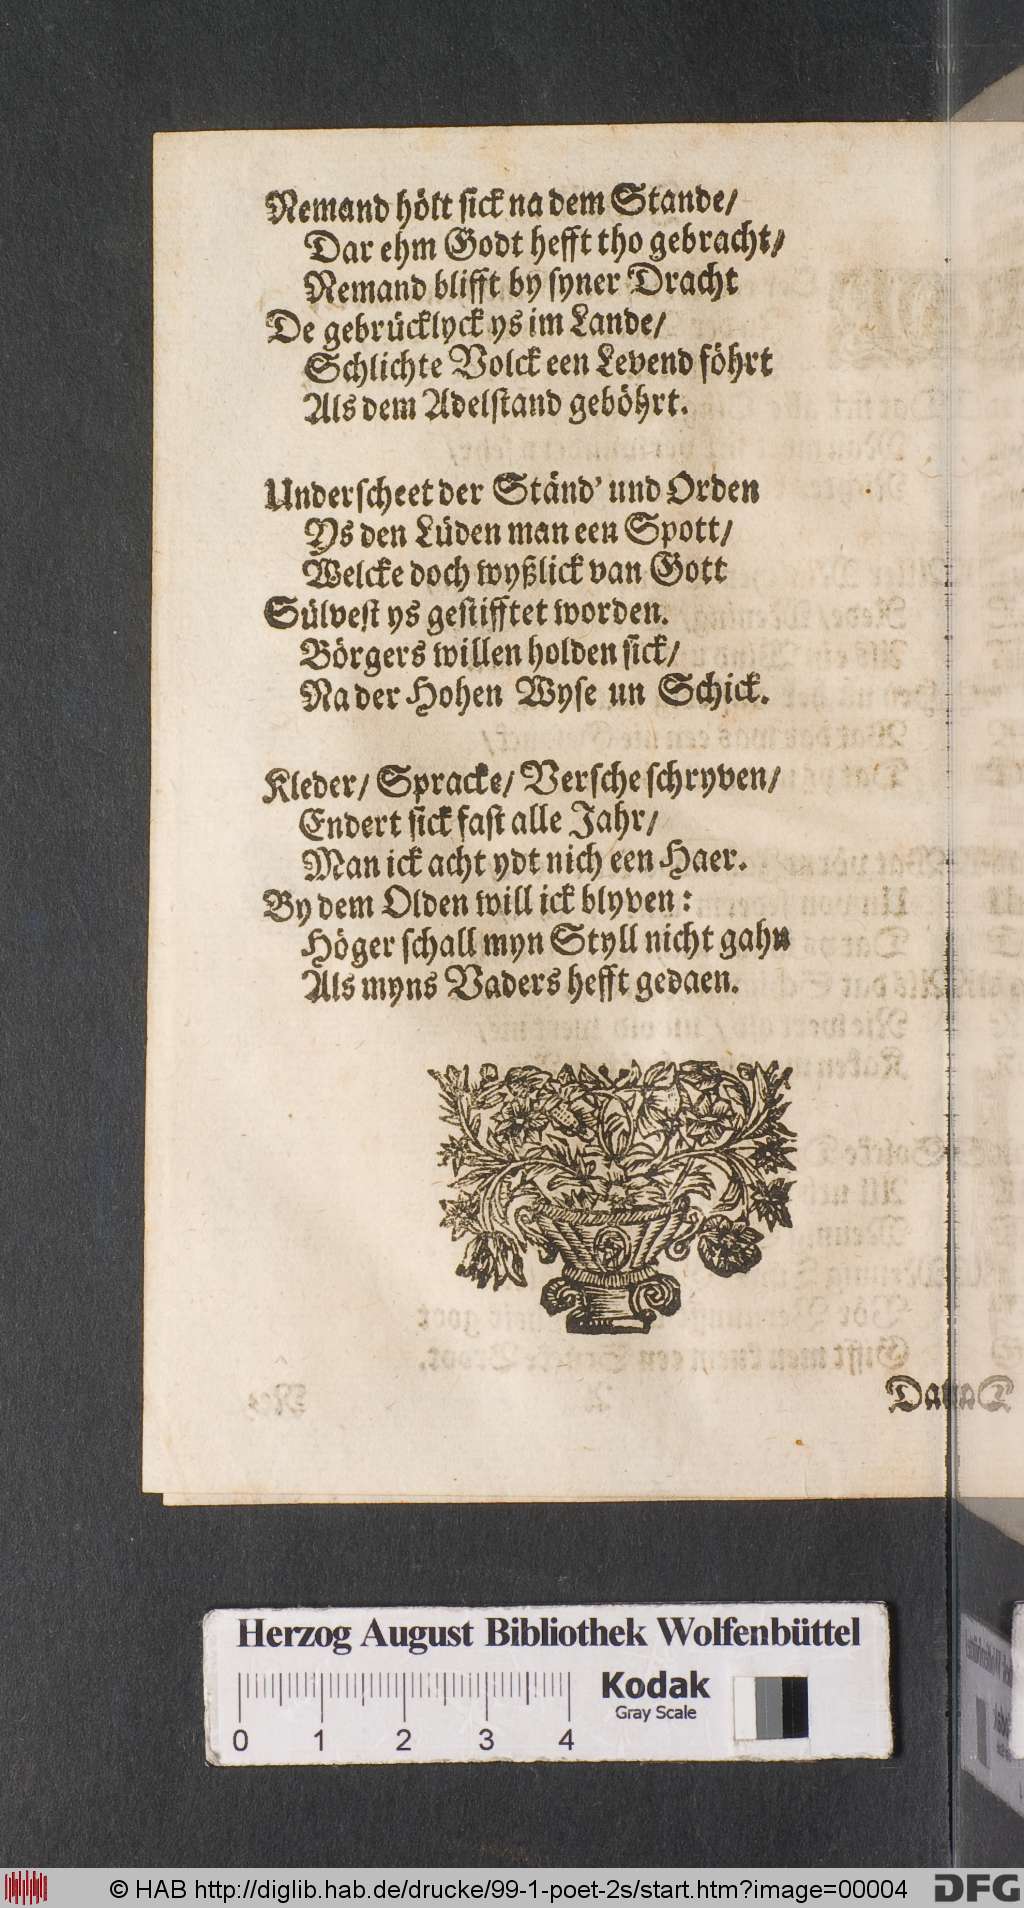 Nemand hölt sick na dem Stande/
Dar ehm Godt hefft tho gebracht/
Nemand blifft by syner Dracht
De gebrücklyck ys im Lande/
Schlichte Volck een Levend föhrt
Als dem Adelstand geböhrt.
Underscheet der Ständ' und Orden
Ys den Lüden man een Spott/
Welcke doch wyßlick van Gott
Sülvest ys gestifftet worden.
Börgers willen holden sick/
Na der Hohen Wyse un Schick.
Kleder/ Spracke/ Versche schryven/
Endert sick fast alle Jahr/
Man ick acht ydt nich een Haer.
By dem Olden will ick blyven:
Höger schall myn Styll nicht gahn
Als myns Vaders hefft gedaen.
Herzog August Bibliothek Wolfenbüttel
Kodak
Gray Scale
0 1 2 3 4
© HAB http://diglib.hab.de/drucke/99-1-poet-2s/start.htm?image=00004
DFG